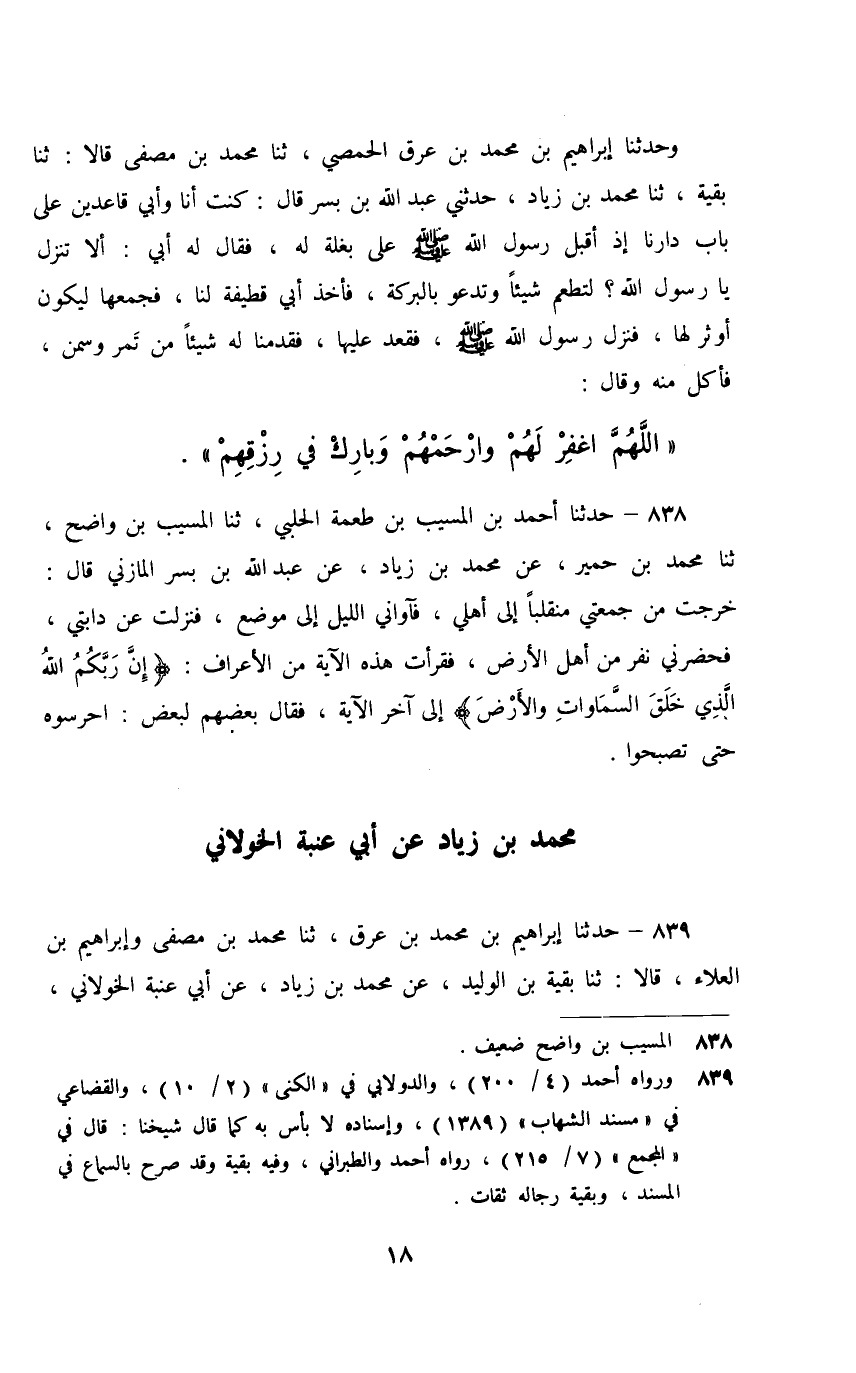 وحدثنا إبراهيم بن محمد بن عرق الحمصي ، ثنا محمد بن مصفى قالا : ثنا
بقية ، ثنا محمد بن زياد ، حدثني عبد الله بن بسر قال : كنت أنا وأبي قاعدين على
باب دارنا إذ أقبل رسول الله ﷺ على بغلة له ، فقال له أبي : ألا تنزل
يا رسول الله ؟ لتطعم شيئاً وتدعو بالبركة ، فأخذ أبي قطيفة لنا ، فجمعها ليكون
أوثر لها ، فنزل رسول الله ﷺ ، فقعد عليها ، فقدمنا له شيئاً من تَمر وسمن ،
فأكل منه وقال :
« اللَّهُمَّ اغفِرْ لَهُمْ وارْحَمْهُمْ وَبارِكْ في رِزْقِهِمْ » .
٨٣٨ – حدثنا أحمد بن المسيب بن طعمة الحلبي ، ثنا المسيب بن واضح ،
ثنا محمد بن حمير ، عن محمد بن زياد ، عن عبد الله بن بسر المازني قال :
خرجت من جمعتي منقلباً إلى أهلي ، فآواني الليل إلى موضع ، فنزلت عن دابتي ،
فحضرني نفر من أهل الأرض ، فقرأت هذه الآية من الأعراف : ﴿ إِنَّ رَبَّكُمُ اللهُ
الَّذِي خَلَقَ السَّمَاواتِ والأَرْضَ ﴾ إلى آخر الآية ، فقال بعضهم لبعض : احرسوه
حتى تصبحوا .
محمد بن زياد عن أبي عنبة الخولاني
٨٣٩ – حدثنا إبراهيم بن محمد بن عرق ، ثنا محمد بن مصفى وإبراهيم بن
العلاء ، قالا : ثنا بقية بن الوليد ، عن محمد بن زياد ، عن أبي عنبة الخولاني ،
٨٣٨ المسيب بن واضح ضعيف .
٨٣٩ ورواه أحمد ( ٤ / ٢٠٠ ) ، والدولابي في « الكنى » ( ٢ / ١٠ ) ، والقضاعي
في « مسند الشهاب » ( ١٣٨٩ ) ، وإسناده لا بأس به كما قال شيخنا : قال في
« المجمع » ( ٧ / ٢١٥ ) ، رواه أحمد والطبراني ، وفيه بقية وقد صرح بالسماع في
المسند ، وبقية رجاله ثقات .
١٨